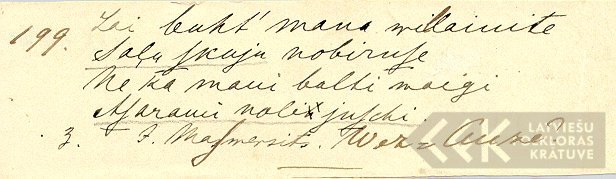 199. Lai buht' mana willainite
Saļu skuju nobiruse
Ne kā mani balti waigi
Asarami nolijuschi.
3. J. Wez=Auze
LATVIEŠU
FOLKLORAS
KRĀTUVE